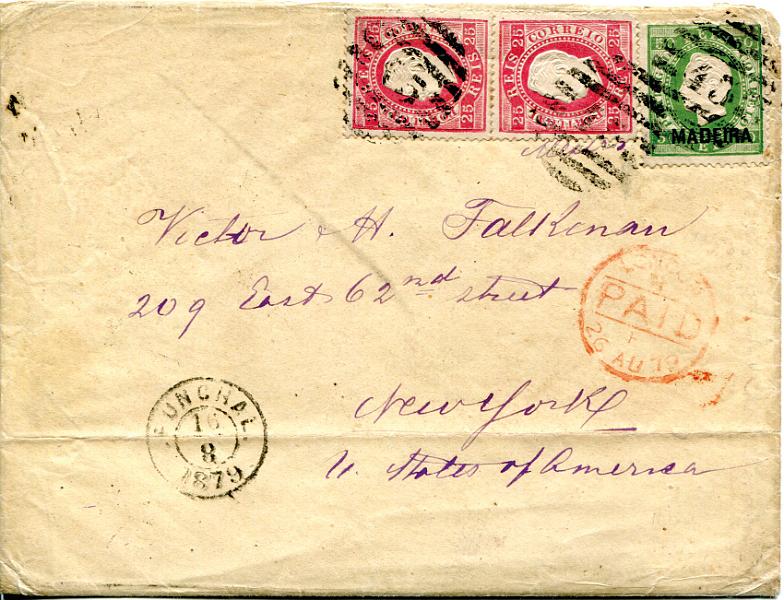 25 REIS 25 REIS
REIS 25 CORREIO 25
MADEIRA
Victor H. Falkenau
209 East 62nd street
PAID
26 AU 79
New York
U. States of America
FUNCHAL
16
8
1879